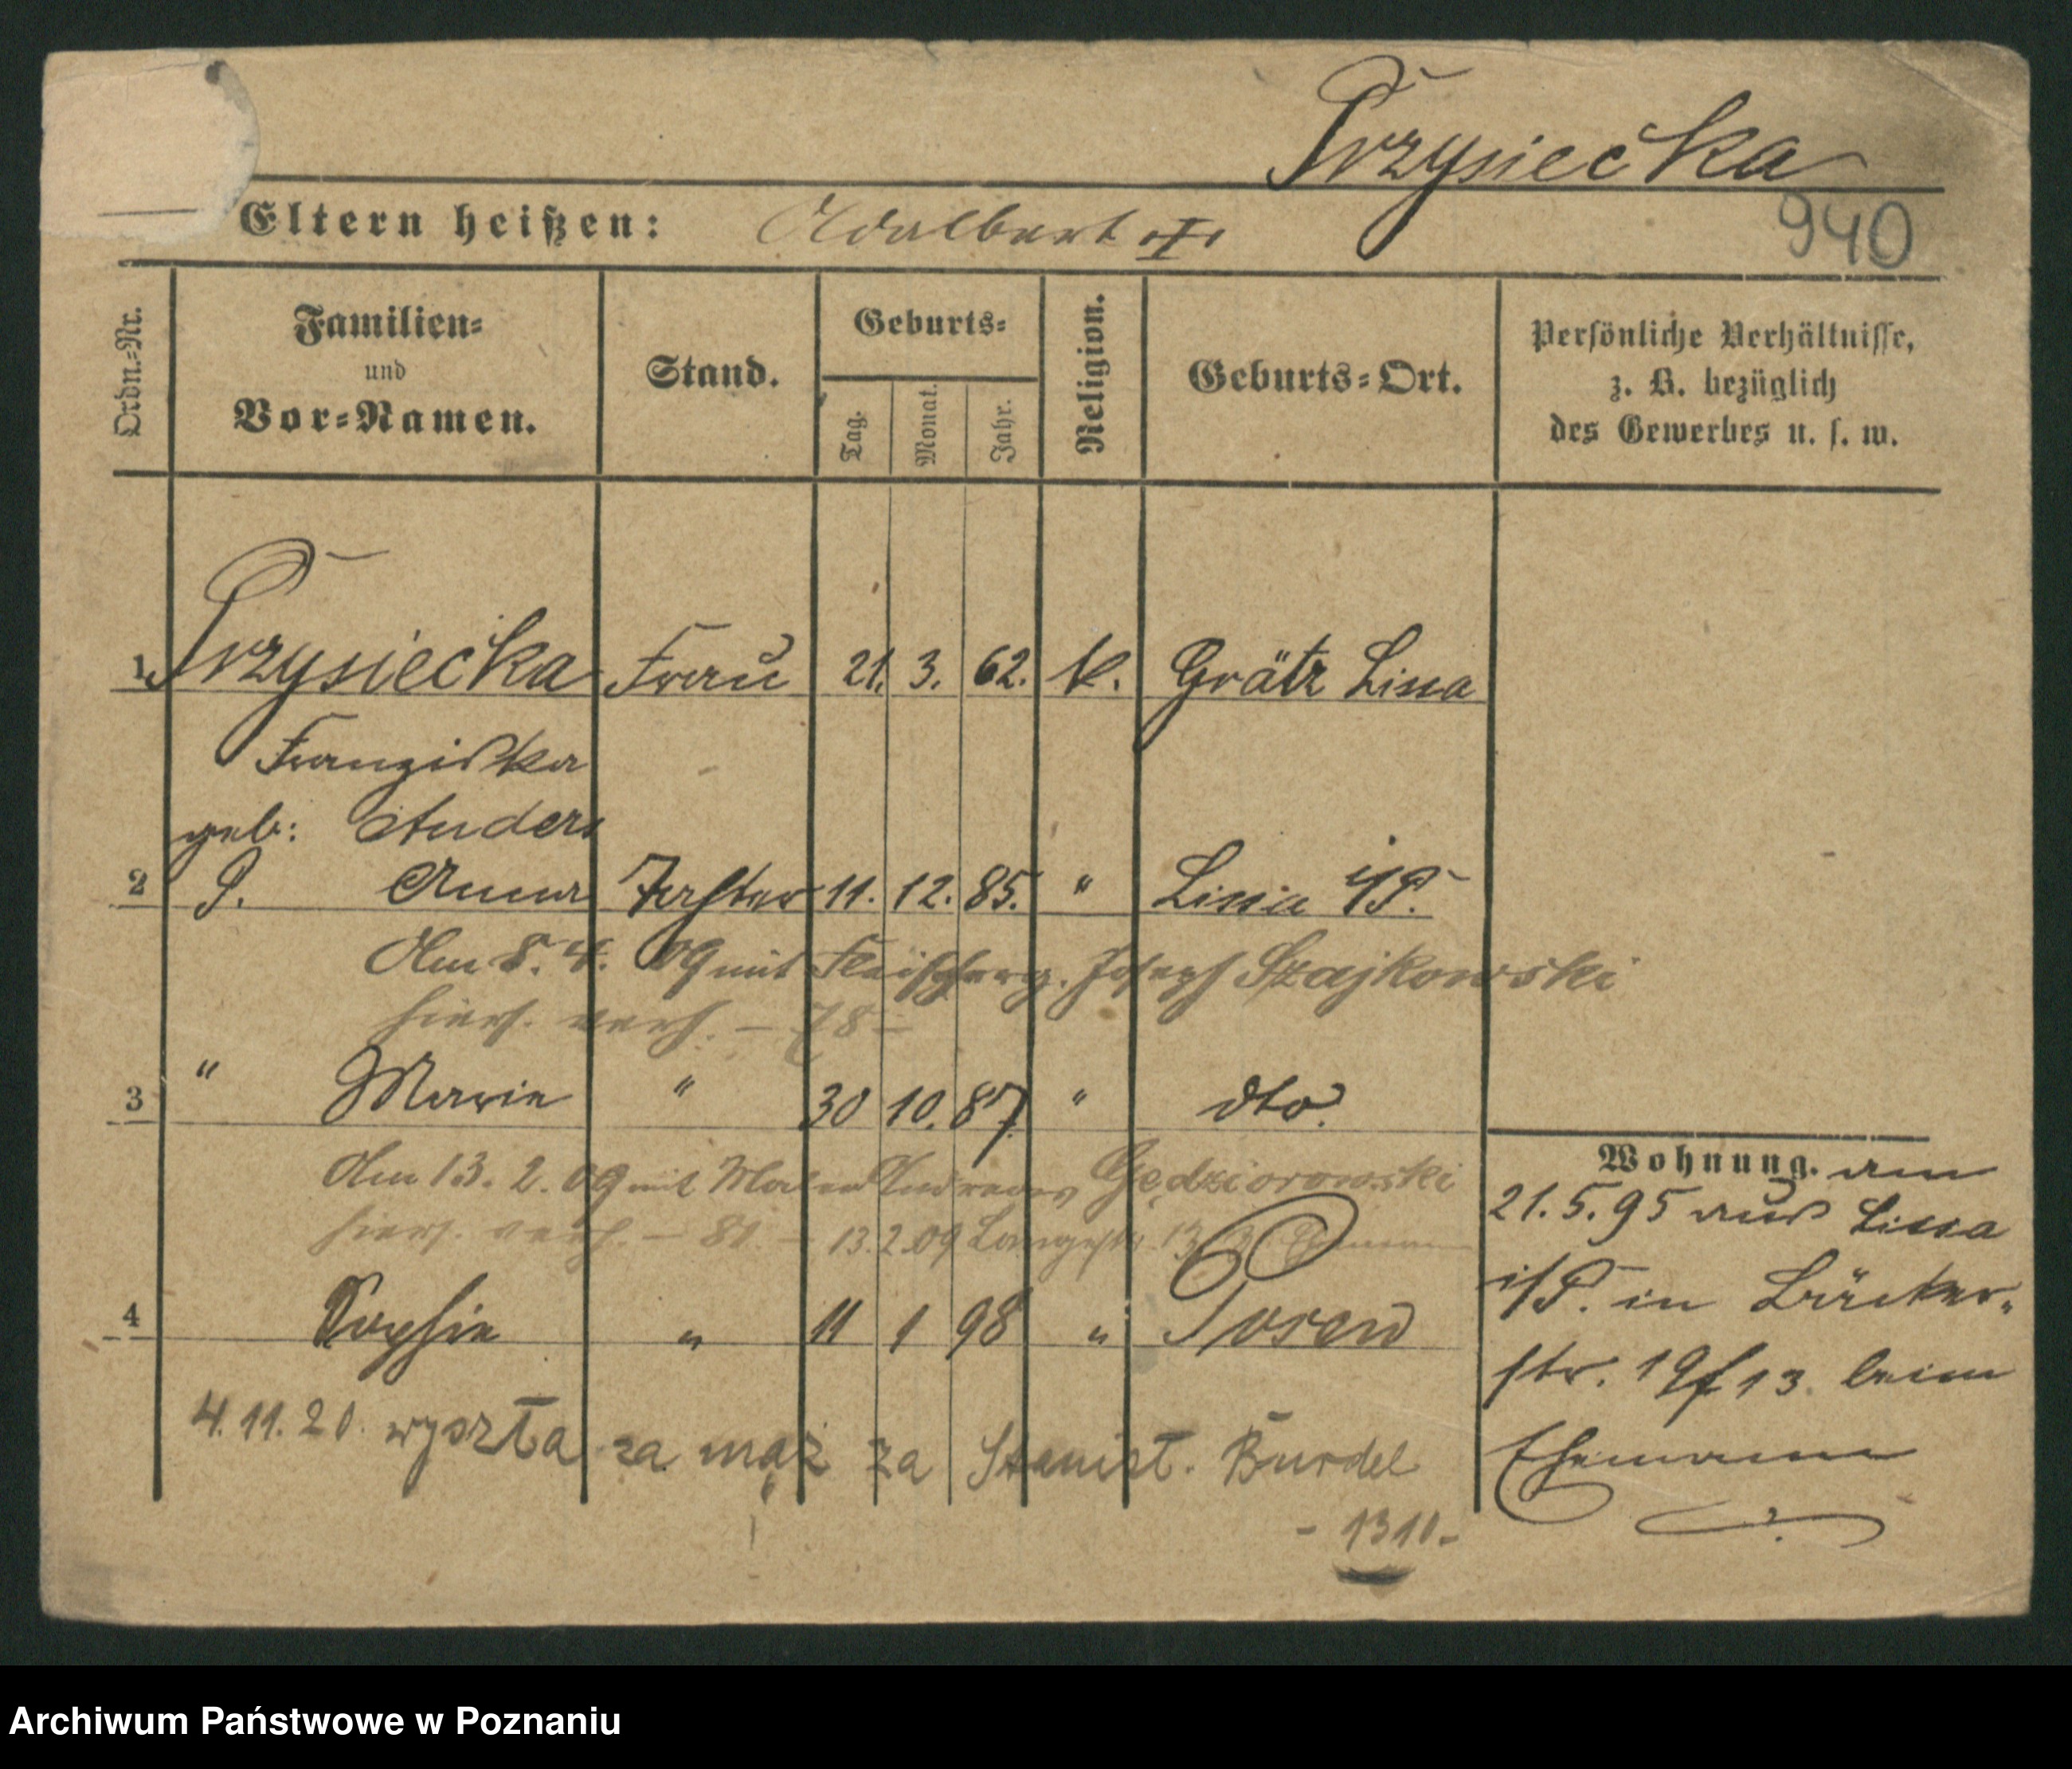 Przysiecka
940
Eltern heißen: Adalbert I
Ordn.-Nr.
Familien-
und
Vor-Namen.
Stand.
Geburts-
Tag.
Monat.
Jahr.
Religion.
Geburts-Ort.
Persönliche Verhältnisse,
z. B. bezüglich
des Gewerbes u. s. w.
1 Przysiecka Frau 21. 3. 62. k. Grätz Lissa
Franziska
geb: Anders
2 P. Anna Tochter 11. 12. 85. " Lissa i/P.
Am 8. 4. 09 mit Fleischerg. Joseph Szajkowski
hiers. verh. - 78 -
3 " Marie " 30 10. 87. " dto.
Am 13. 2. 09 mit Maler Andreas Gędziorowski
hiers. verh. - 81. - 13.2.09 Langestr. 13
4 Sophie " 11 1 98 " Posen
4.11.20. wyszła za mąż za Stanisł. Burdel
- 1310 -
Wohnung. am
21.5.95 aus Lissa
i/P. in Bäcker-
str. 19/13. beim
Ehemann
Archiwum Państwowe w Poznaniu